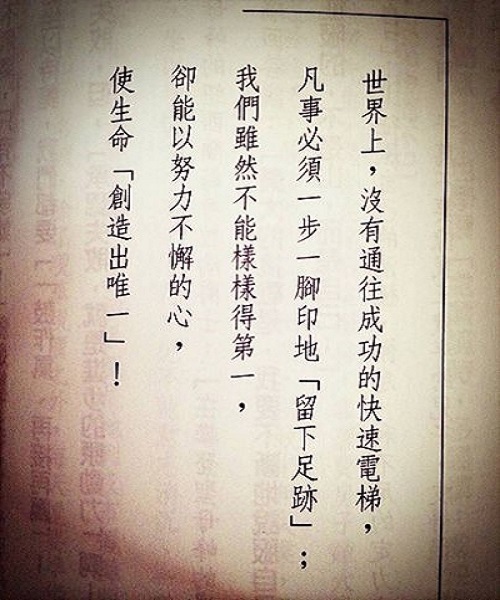 世界上，沒有通往成功的快速電梯，
凡事必須一步一腳印地「留下足跡」；
我們雖然不能樣樣得第一，
卻能以努力不懈的心，
使生命「創造出唯一」！